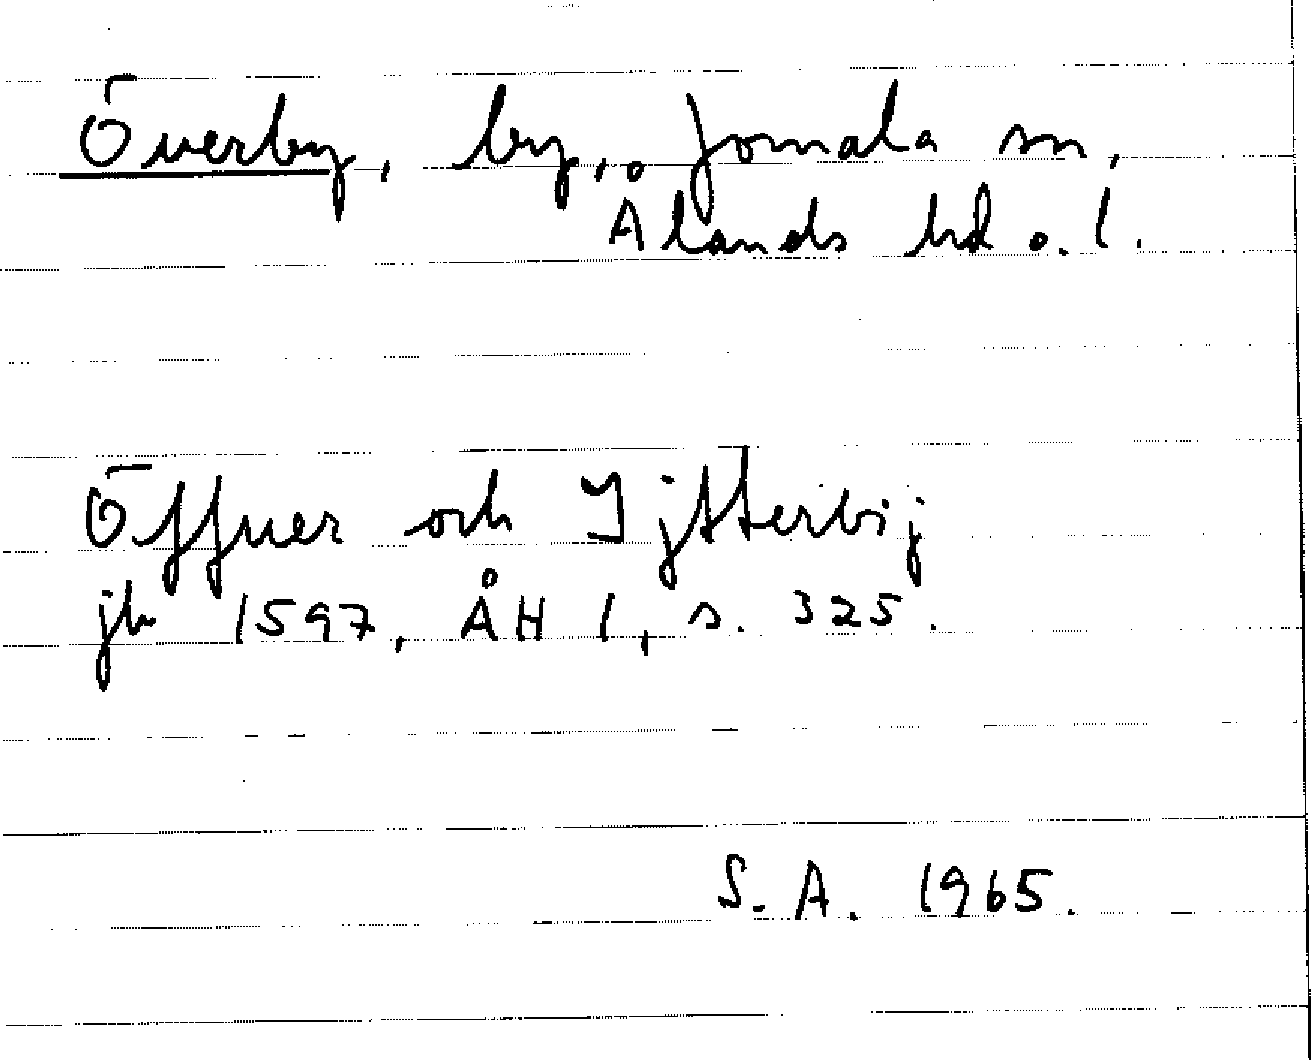 Överby, by, Jomala sn,
Ålands hd o. l.
Öffuer och Ijtterbij
jb 1597, ÅH 1, s. 325.
S. A. 1965.